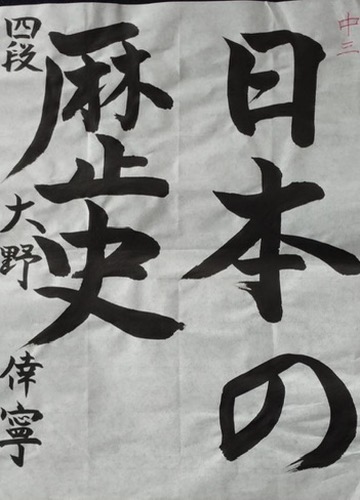 中三
日本の
歴史
四段 大野 倖寧